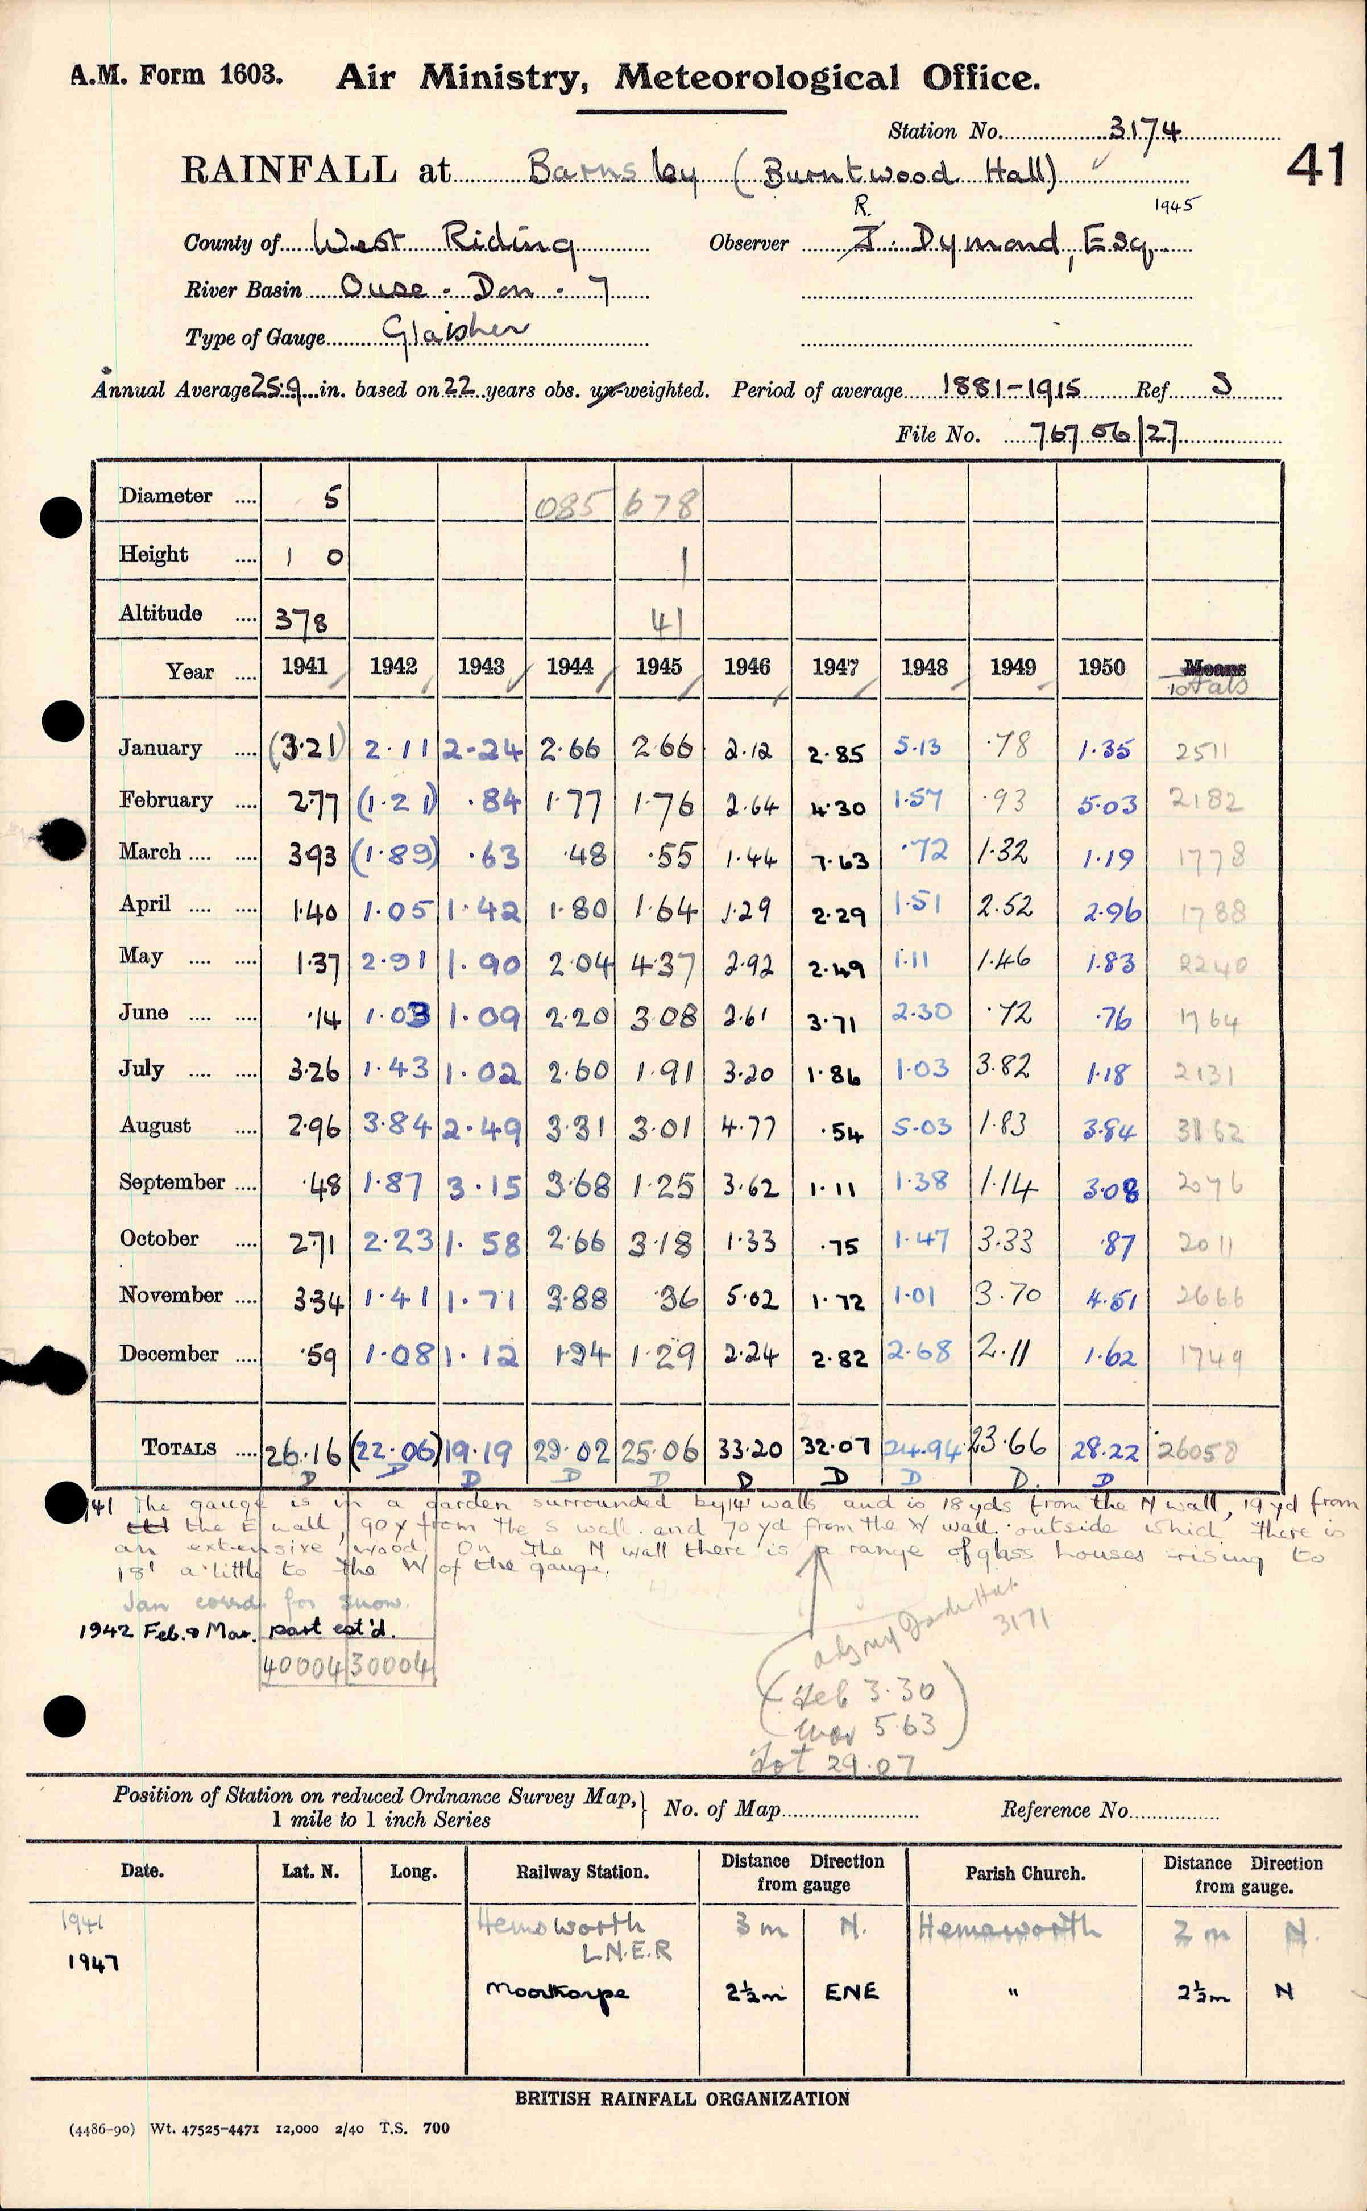 A.M. Form 1603. Air Ministry, Meteorological Office.
Station No. 3174
41
RAINFALL at Barnsley (Burntwood Hall)
R. 1945
County of West Riding Observer J. Dymond, Esq.
River Basin Ouse - Don - 7
Type of Gauge Glaisher
Annual Average 25.9 in. based on 22 years obs. un-weighted. Period of average 1881-1915 Ref S
File No. 767 06/27
Diameter .... 5 085 678
Height .... 1 0 1
Altitude .... 378 41
Year .... 1941 1942 1943 1944 1945 1946 1947 1948 1949 1950 Means
Totals
January .... (3.21) 2.11 2.24 2.66 2.66 2.12 2.85 5.13 .78 1.35 2511
February .... 2.77 (1.21) .84 1.77 1.76 2.64 4.30 1.57 .93 5.03 2182
March .... .... 3.93 (1.89) .63 .48 .55 1.44 7.63 .72 1.32 1.19 1778
April .... .... 1.40 1.05 1.42 1.80 1.64 1.29 2.29 1.51 2.52 2.96 1788
May .... .... 1.37 2.91 1.90 2.04 4.37 2.92 2.49 1.11 1.46 1.83 2240
June .... .... .14 1.03 1.09 2.20 3.08 2.61 3.71 2.30 .72 .76 1764
July .... .... 3.26 1.43 1.02 2.60 1.91 3.20 1.86 1.03 3.82 1.18 2131
August .... 2.96 3.84 2.49 3.31 3.01 4.77 .54 5.03 1.83 3.84 3162
September .... .48 1.87 3.15 3.68 1.25 3.62 1.11 1.38 1.14 3.08 2076
October .... 2.71 2.23 1.58 2.66 3.18 1.33 .75 1.47 3.33 .87 2011
November .... 3.34 1.41 1.71 3.88 .36 5.02 1.72 1.01 3.70 4.51 2666
December .... .59 1.08 1.12 1.94 1.29 2.24 2.82 2.68 2.11 1.62 1749
TOTALS .... 26.16 (22.06) 19.19 29.02 25.06 33.20 32.07 24.94 23.66 28.22 26058
D D D D D D D D D. D
1941 The gauge is in a garden surrounded by 14' walls and is 18 yds from the N wall, 19 yd from
the E wall, 90 y from the S wall and 70 yd from the W wall outside which there is
an extensive wood. On the N wall there is a range of glass houses rising to
18' a little to the W of the gauge.
Jan corrd for snow.
1942 Feb. & Mar. part est'd.
40004 30004
3171
(Feb 3.30
Mar 5.63)
Tot 29.07
Position of Station on reduced Ordnance Survey Map, 1 mile to 1 inch Series } No. of Map Reference No.
Date. Lat. N. Long. Railway Station. Distance Direction from gauge Parish Church. Distance Direction from gauge.
1941 Hemsworth L.N.E.R 3 m N. Hemsworth 2 m N.
1947 Moorthorpe 2½m ENE " 2½m N
BRITISH RAINFALL ORGANIZATION
(4486-90) Wt. 47525-4471 12,000 2/40 T.S. 700